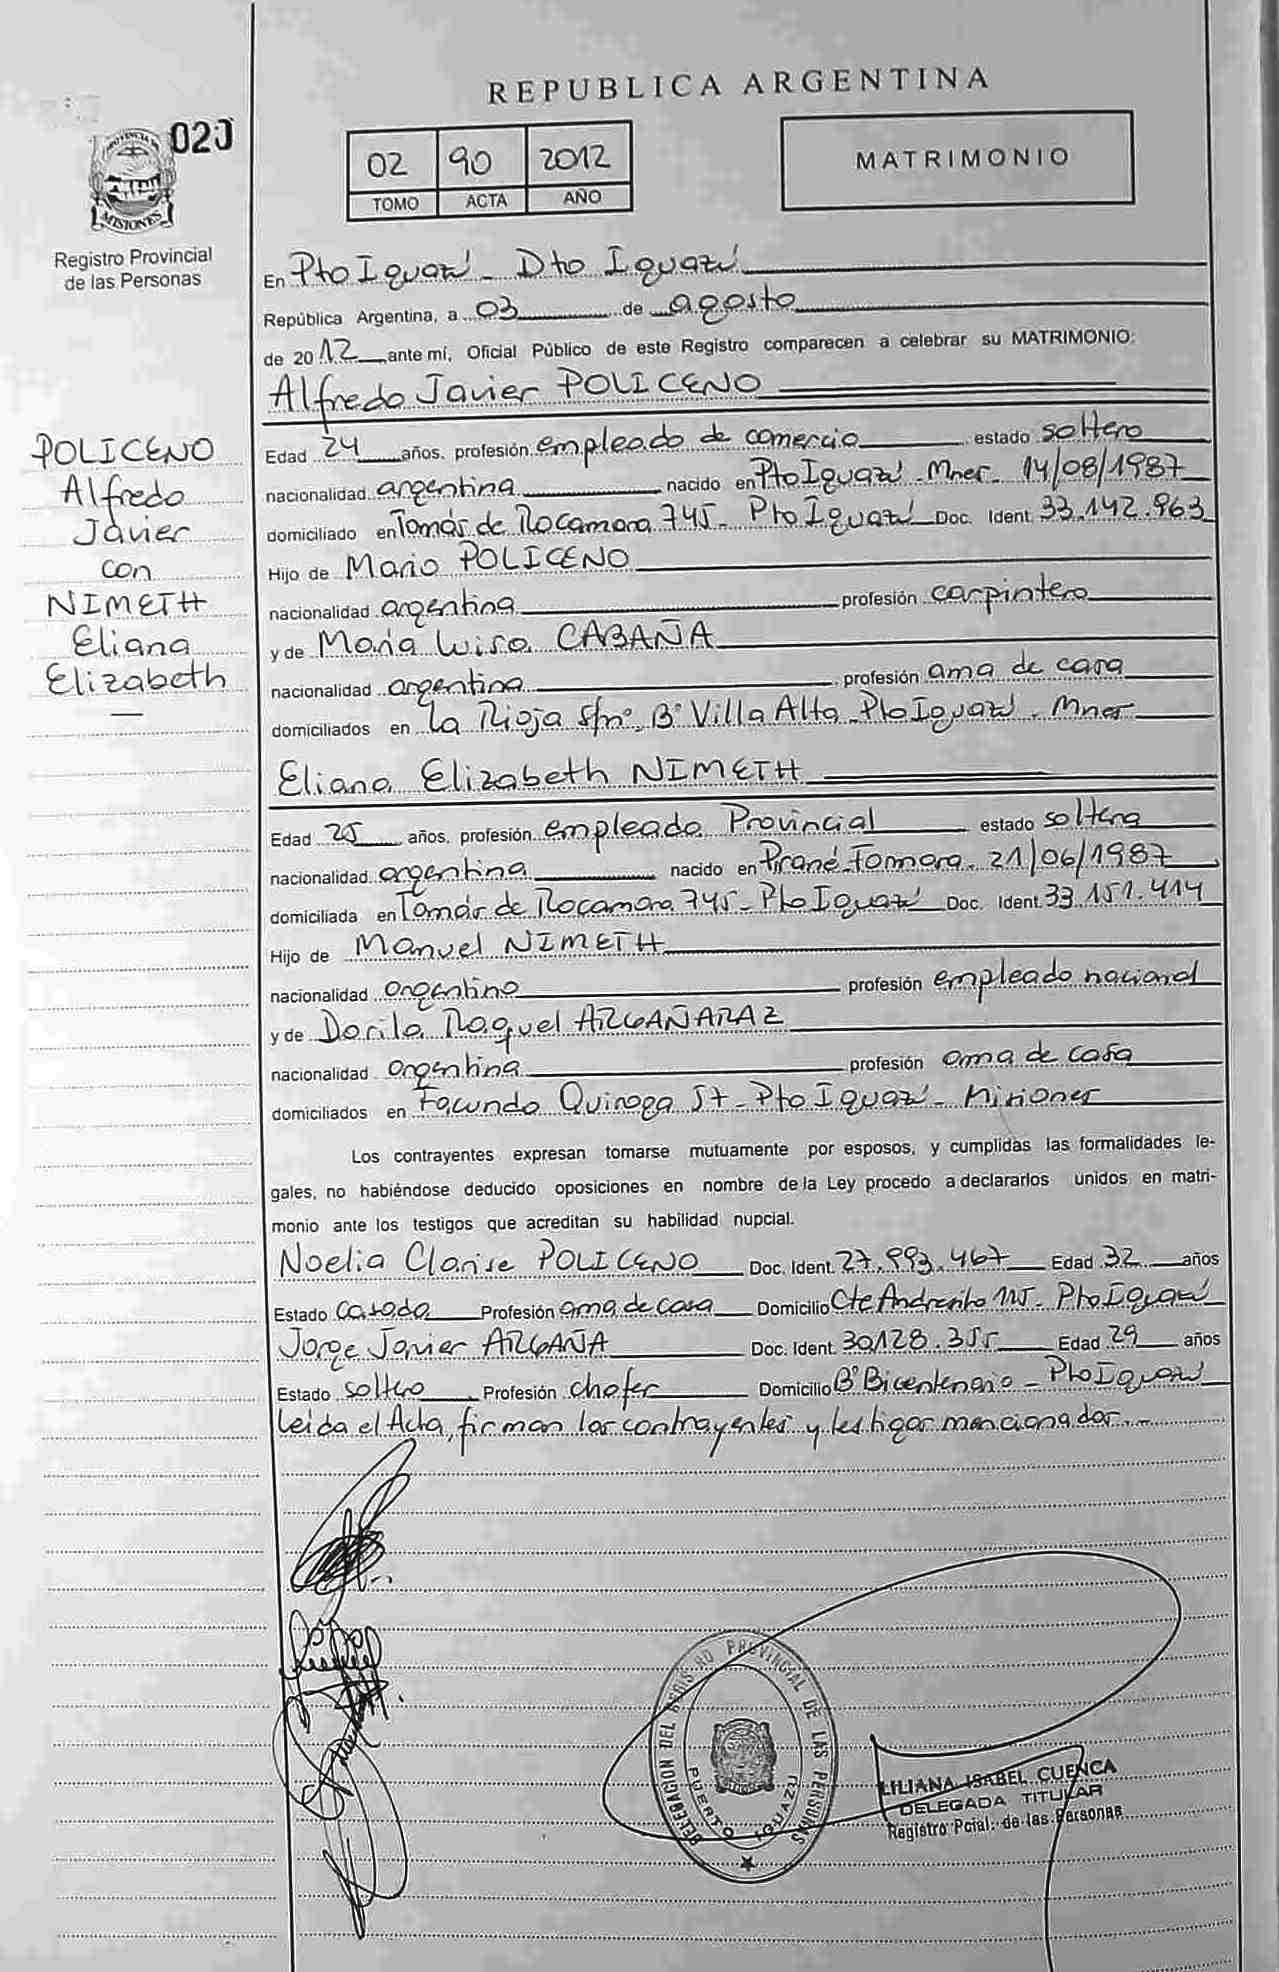 REPUBLICA ARGENTINA
020
PROVINCIA DE
MISIONES
Registro Provincial
de las Personas
02 90 2012
TOMO ACTA AÑO
MATRIMONIO
En Pto Iguazú - Dto Iguazú
República Argentina, a 03 de agosto
de 2012 ante mí, Oficial Público de este Registro comparecen a celebrar su MATRIMONIO:
Alfredo Javier POLICENO
POLICENO
Alfredo
Javier
con
NIMETH
Eliana
Elizabeth
Edad 24 años, profesión empleado de comercio estado soltero
nacionalidad argentina nacido en Pto Iguazú - Mnes - 14/08/1987
domiciliado en Tomás de Rocamora 745 - Pto Iguazú Doc. Ident. 33.142.963
Hijo de Mario POLICENO
nacionalidad argentina profesión carpintero
y de María Luisa CABAÑA
nacionalidad argentina profesión ama de casa
domiciliados en La Rioja s/nº, Bº Villa Alta - Pto Iguazú - Mnes
Eliana Elizabeth NIMETH
Edad 25 años, profesión empleada Provincial estado soltera
nacionalidad argentina nacido en Pirané - Formosa - 21/06/1987
domiciliada en Tomás de Rocamora 745 - Pto Iguazú Doc. Ident. 33.151.414
Hijo de Manuel NIMETH
nacionalidad argentino profesión empleado nacional
y de Dorila Raquel ARGAÑARAZ
nacionalidad argentina profesión ama de casa
domiciliados en Facundo Quiroga 57 - Pto Iguazú - Misiones
Los contrayentes expresan tomarse mutuamente por esposos, y cumplidas las formalidades le-
gales, no habiéndose deducido oposiciones en nombre de la Ley procedo a declararlos unidos en matri-
monio ante los testigos que acreditan su habilidad nupcial.
Noelia Clarise POLICENO Doc. Ident. 27.993.467 Edad 32 años
Estado casada Profesión ama de casa Domicilio Cte Andresito 115 - Pto Iguazú
Jorge Javier ARGAÑA Doc. Ident. 30.128.355 Edad 29 años
Estado soltero Profesión chofer Domicilio Bº Bicentenario - Pto Iguazú
Leída el Acta, firman los contrayentes y testigos mencionados.-
DELEGACION DEL REGISTRO PROVINCIAL DE LAS PERSONAS
PUERTO IGUAZU
LILIANA ISABEL CUENCA
DELEGADA TITULAR
Registro Pcial. de las Personas